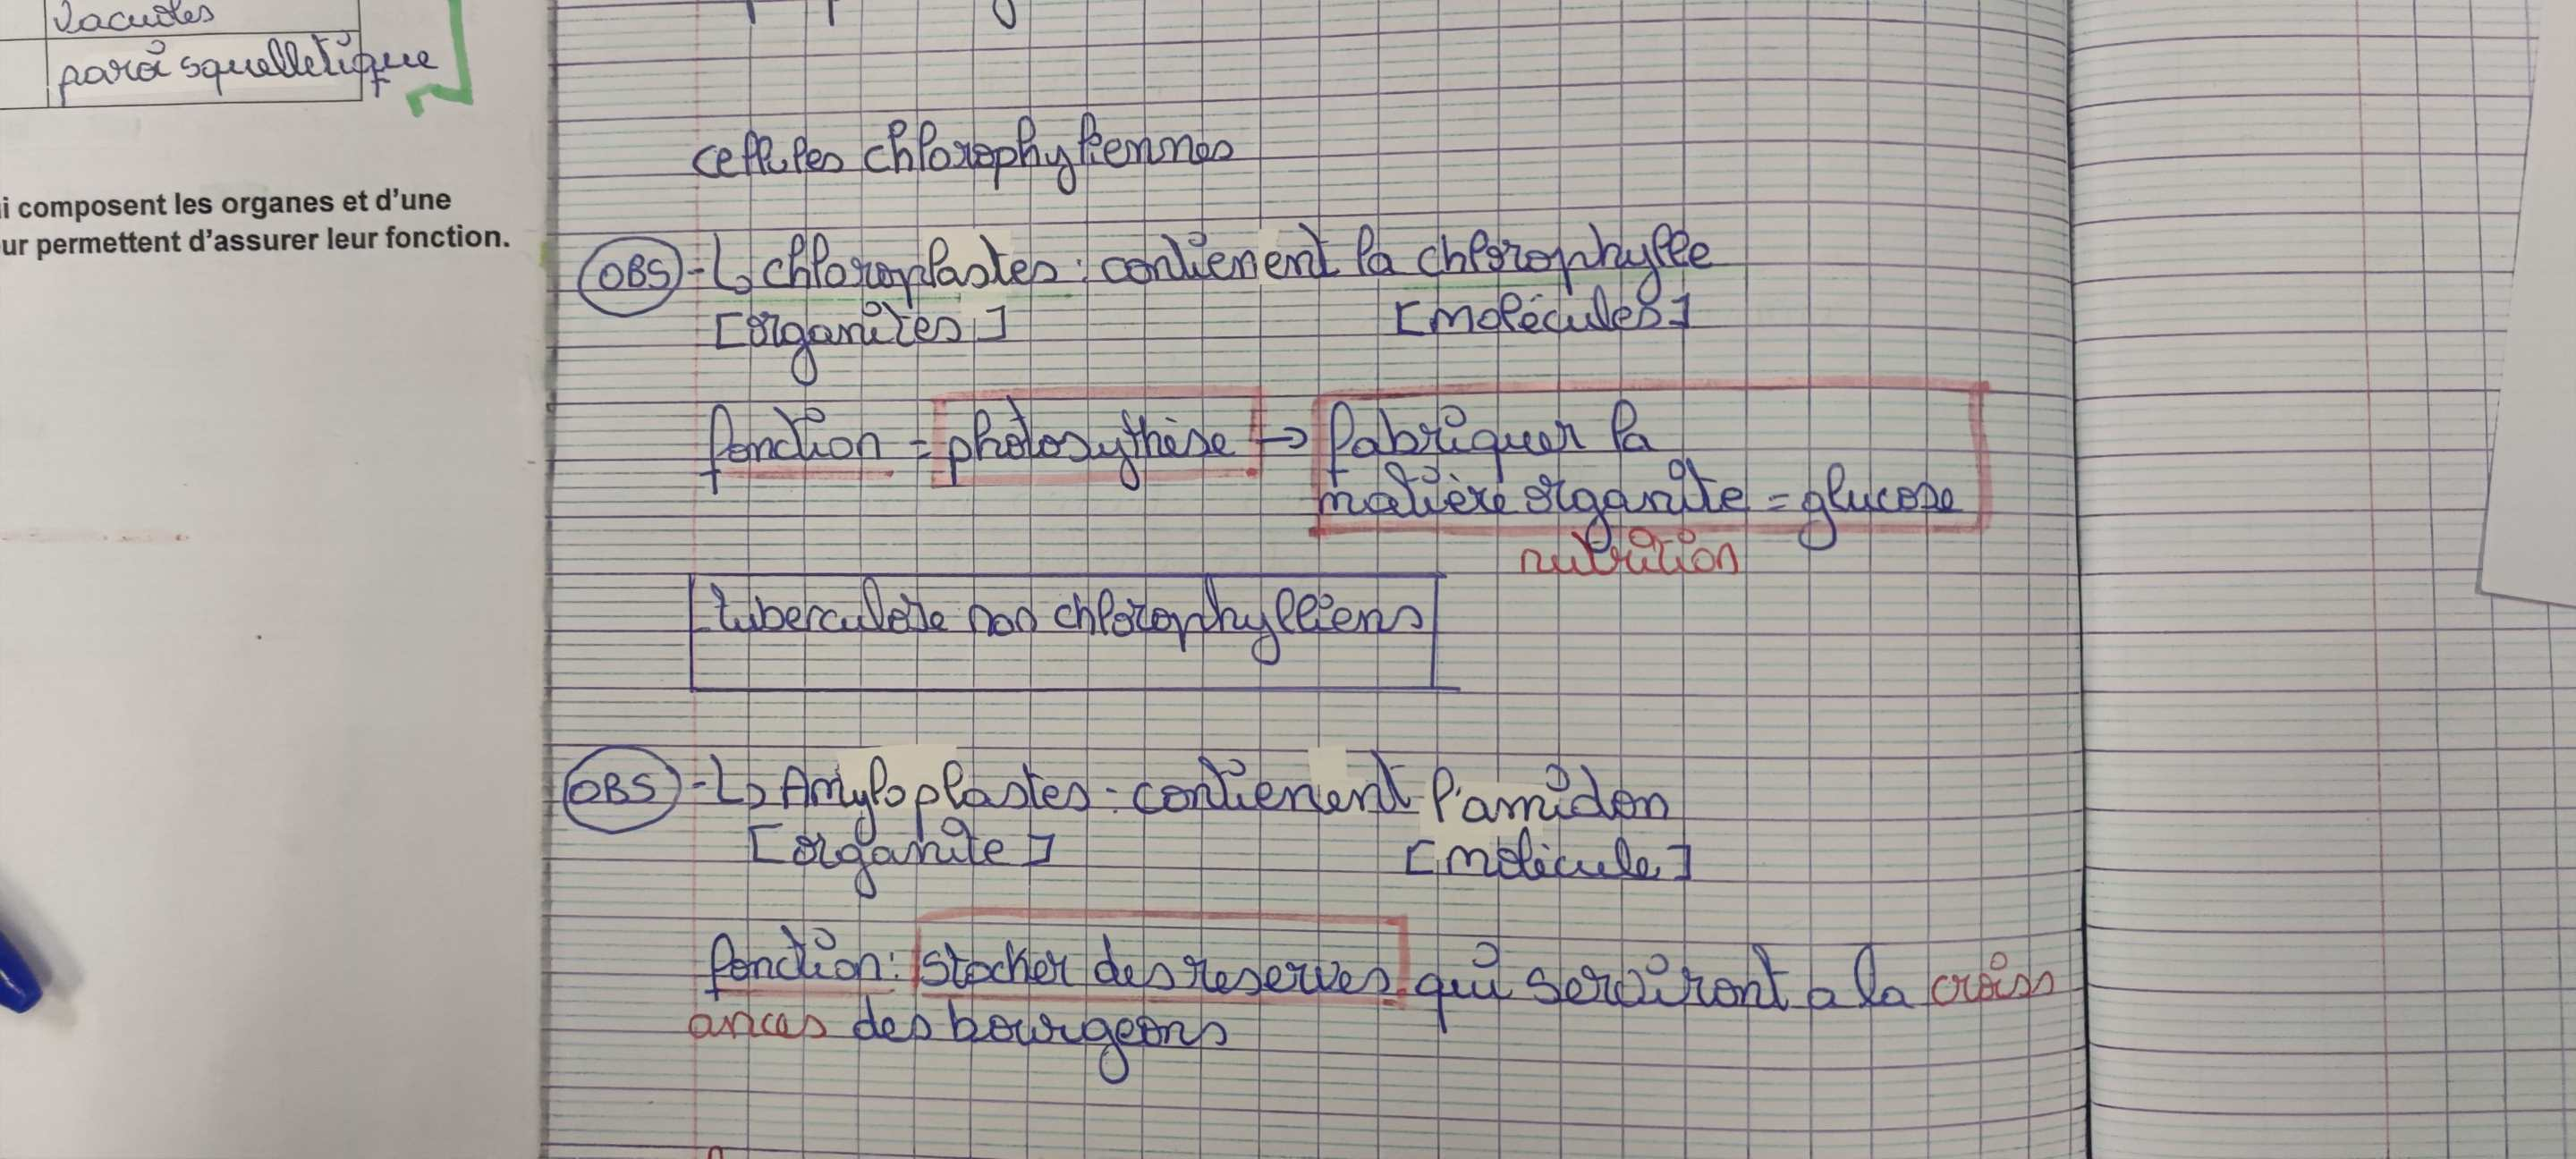 vacuoles
paroi squelletique
i composent les organes et d'une
ur permettent d'assurer leur fonction.
cellules chlorophyliennes
OBS - ↳ chloroplastes : contienent la chlorophylle
[organites] [molécules]
fonction = photosythèse → fabriquer la
matière organite = glucose
nutrition
tuberculose non chlorophylliens
OBS - ↳ Amyloplastes : contienent l'amidon
[organite] [molécule]
fonction : stocker des reserves qui serviront a la croiss
ances des bourgeons